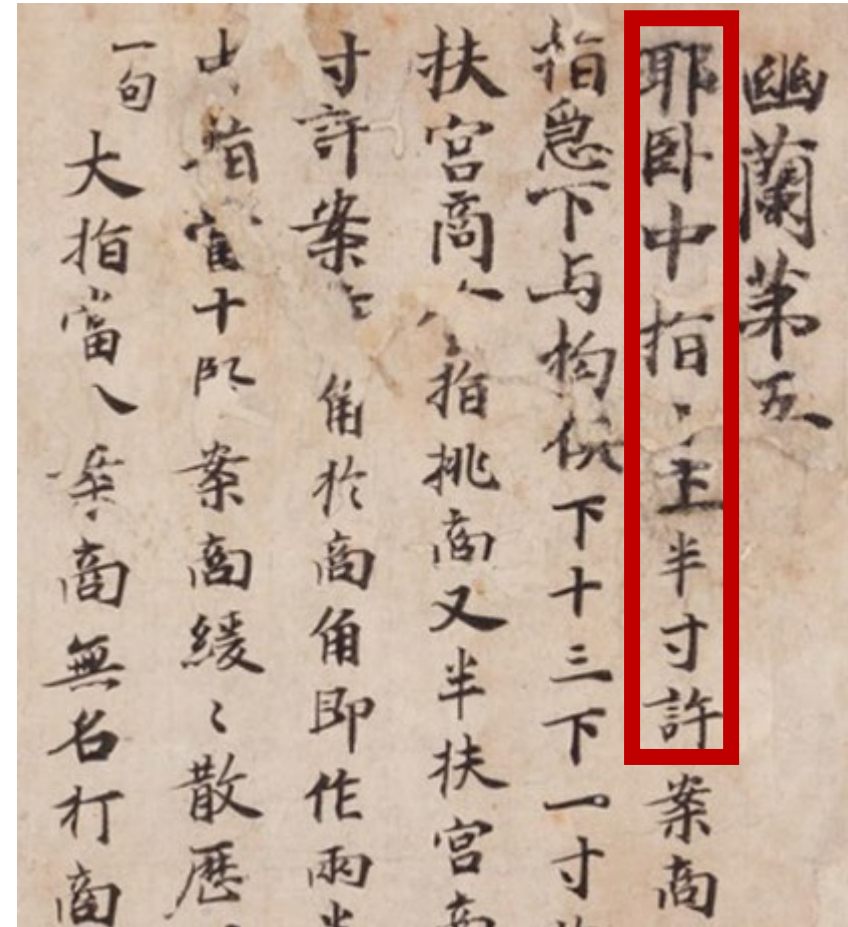 幽蘭第五
耶卧中指上半寸許案商
指急下与拘俱下十三下一寸
扶宮商指挑商又半扶宮商
寸許案角於商角即作兩半
指當十案商緩〻散歷
一句大指當八案商無名打商